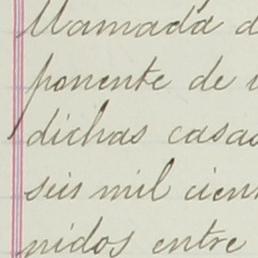 llamada d
ponente de
dichas casa
seis mil cien
nidos entre